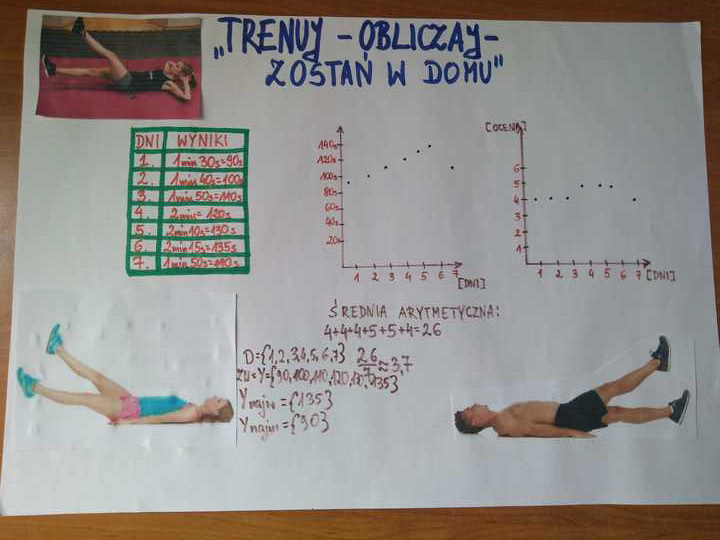 „TRENUJ - OBLICZAJ -
ZOSTAŃ W DOMU"
DNI WYNIKI
1. 1min 30s=90s
2. 1min 40s=100s
3. 1min 50s=110s
4. 2min= 120s
5. 2min10s=130s
6. 2min15s=135s
7. 1min 50s=110s
140s
120s
100s
80s
60s
40s
20s
1 2 3 4 5 6 7
[DNI]
[OCENA]
6
5
4
3
2
1
1 2 3 4 5 6 7 [DNI]
ŚREDNIA ARYTMETYCZNA:
4+4+4+5+5+4=26
D={1,2,3,4,5,6,7} 26/7≈3,7
ZW=Y={90,100,110,120,130,135}
Y najw={135}
Y najm={90}